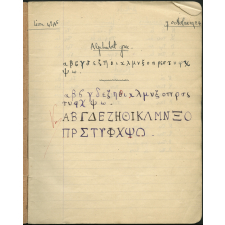 Alphabet grec
α β γ δ ε ζ η θ ι κ λ μ ν ξ ο π ρ σ τ υ φ χ
ψ ω.
α β γ δ ε ζ η θ ι κ λ μ ν ξ ο π ρ σ
τ υ φ χ ψ ω.
Α Β Γ Δ Ε Ζ Η Θ Ι Κ Λ Μ Ν Ξ Ο
Π Ρ Σ Τ Υ Φ Χ Ψ Ω